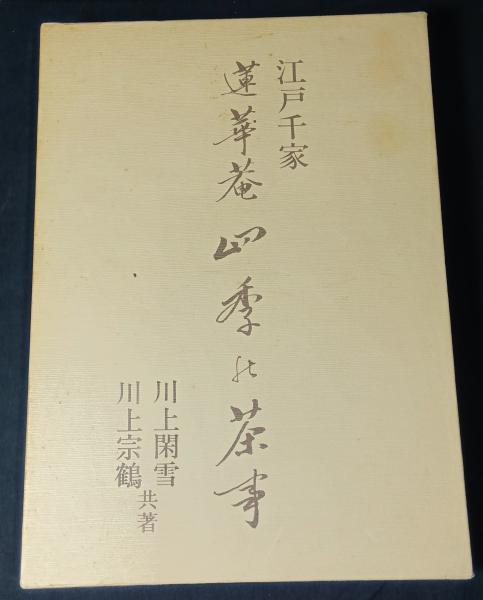 江戸千家
蓮華菴 四季の茶事
川上閑雪
川上宗鶴
共著